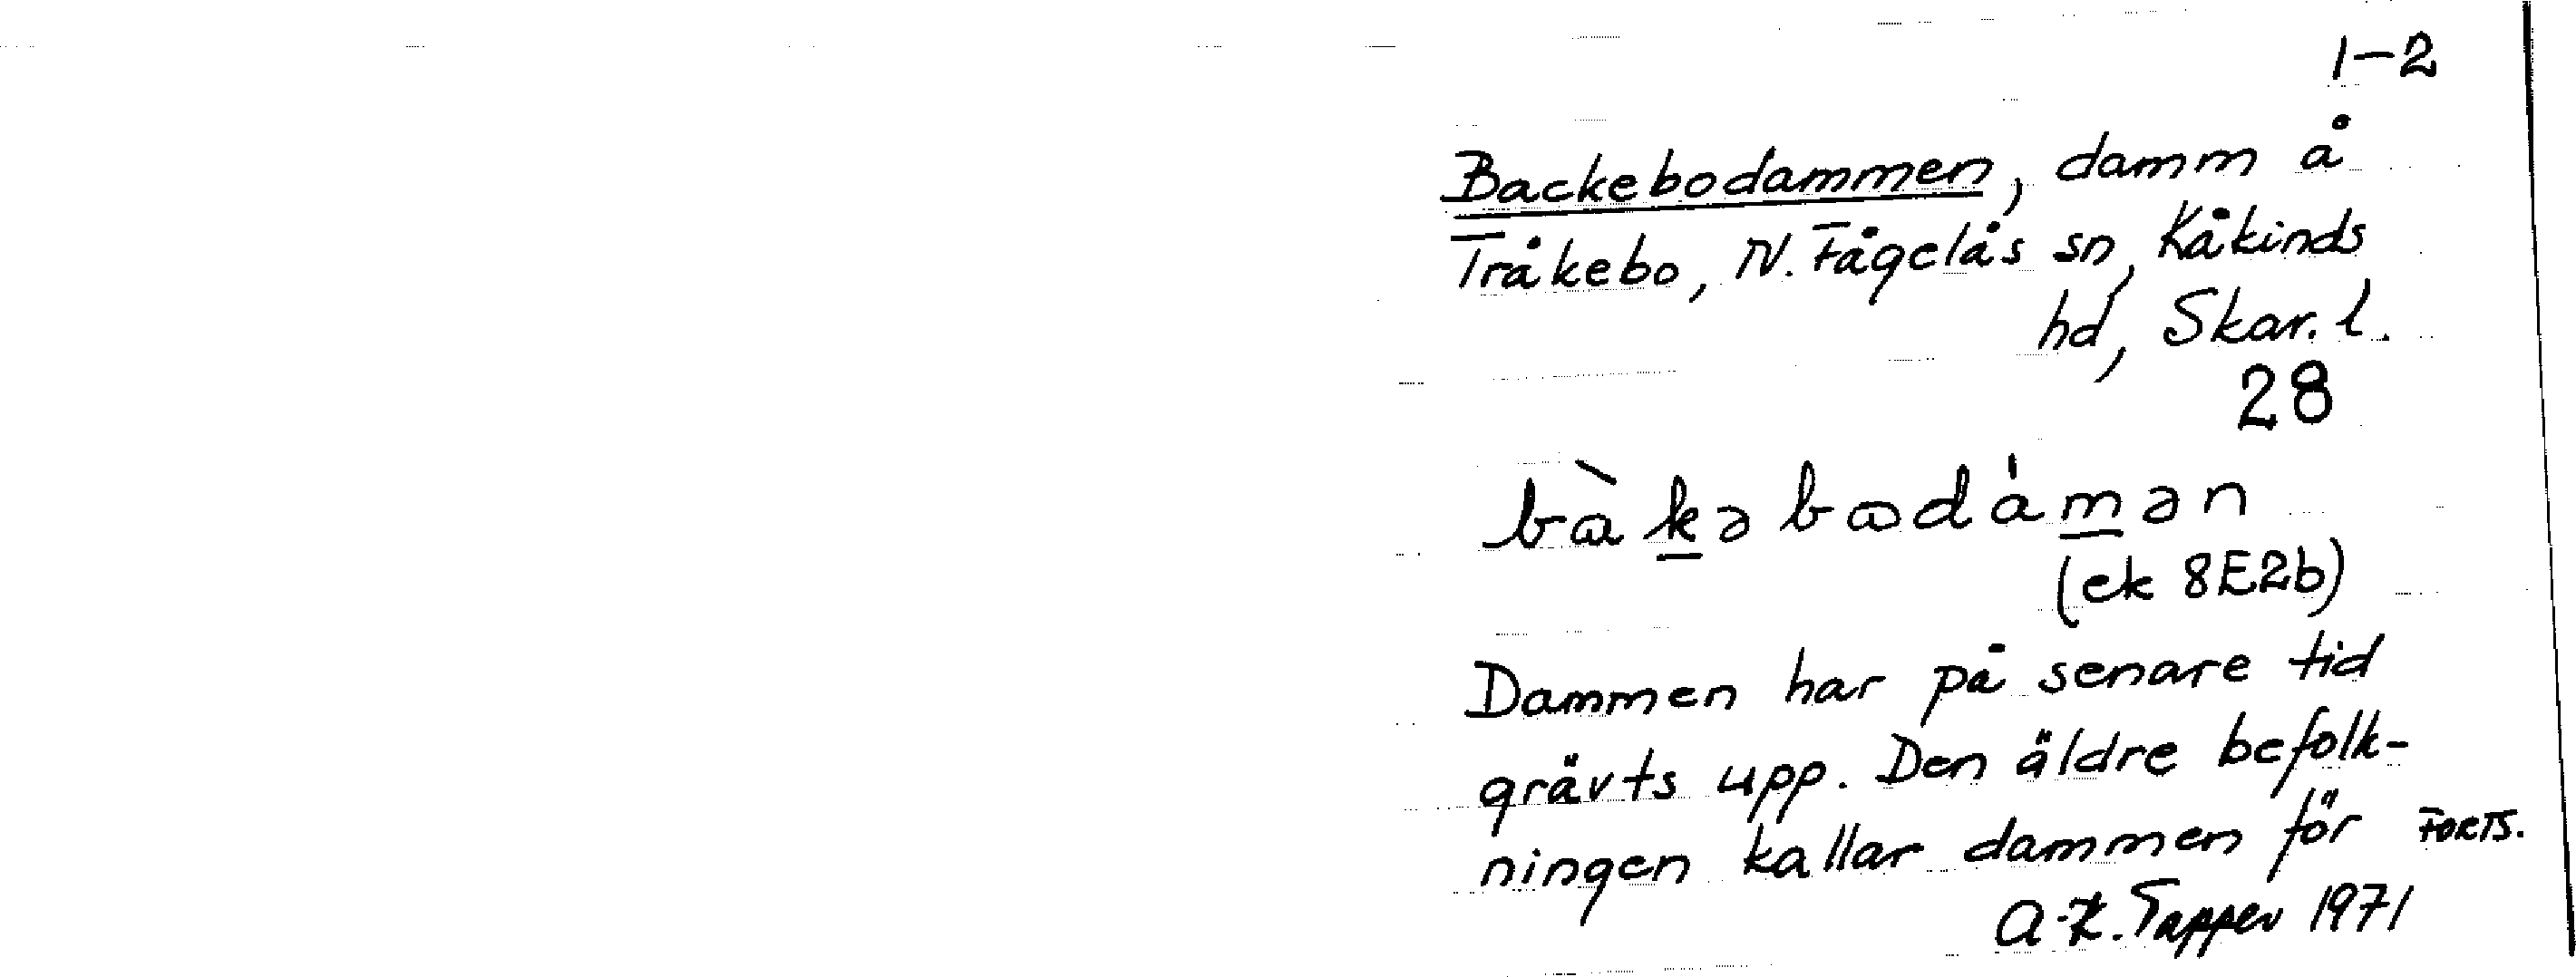 1-2
Backebodammen, damm å
Tråkebo, N. Fågelås sn, Kåkinds
hd, Skar. l.
28
bàkəbωdámən
(ek 8E2b)
Dammen har på senare tid
grävts upp. Den äldre befolk-
ningen kallar dammen för FORTS.
A-K. Tapper 1971